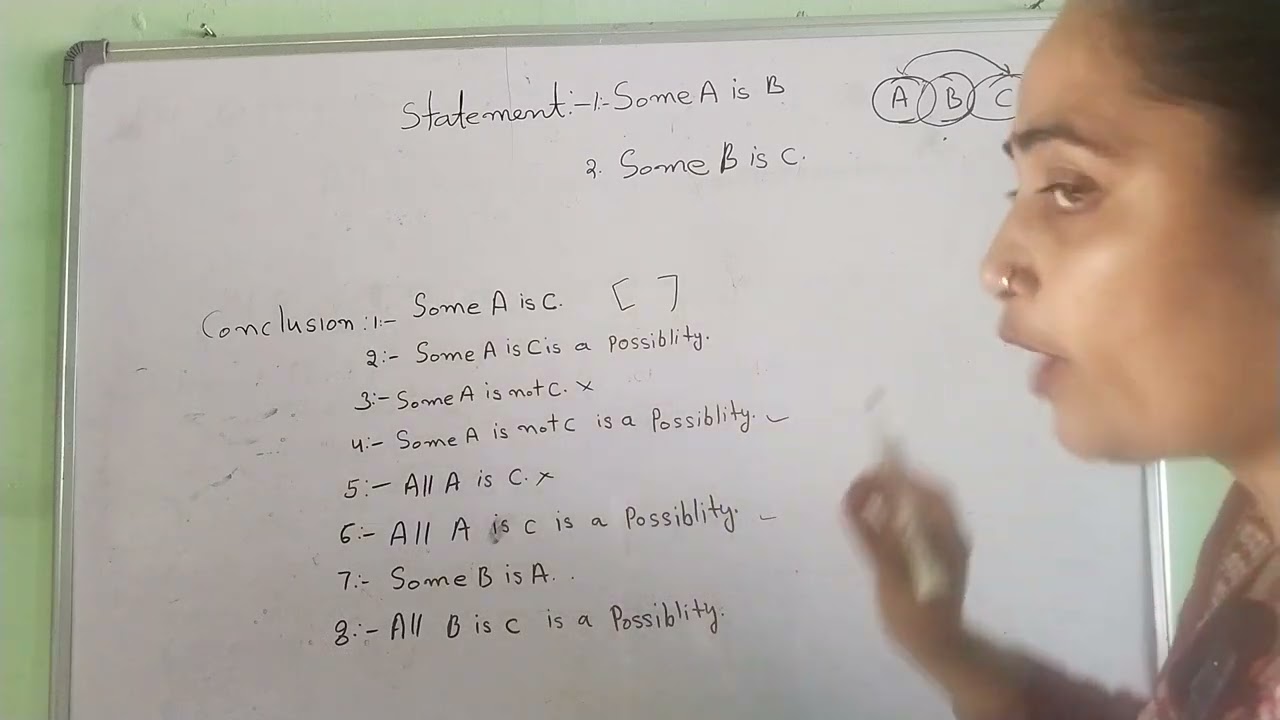 Statement:-1:- Some A is B
A B C
2. Some B is C.
Conclusion:1:- Some A is C. [ ]
2:- Some A is C is a Possiblity.
3:- Some A is not C. ×
4:- Some A is not C is a Possiblity. ✓
5:- All A is C. ×
6:- All A is C is a Possiblity. ✓
7:- Some B is A. .
8:- All B is C is a Possiblity.